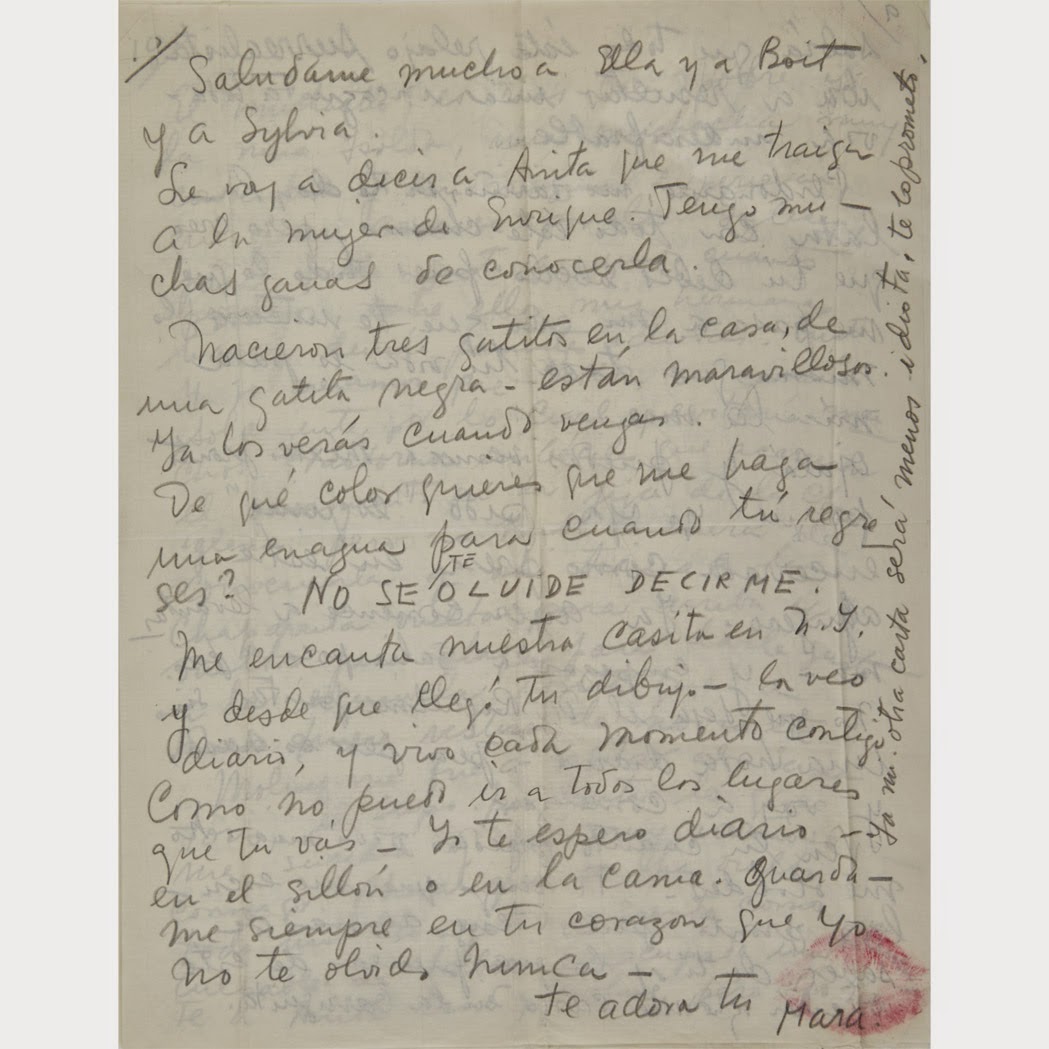 Saludáme mucho a Ella y a Boit
y a Sylvia.
Le voy a decir a Anita que me traiga
a la mujer de Enrique. Tengo mu-
chas ganas de conocerla.
Nacieron tres gatitos en la casa, de
una gatita negra - están maravillosos.
Ya los verás cuando vengas.
De qué color quieres que me haga
una enagua para cuando tú regre
ses? NO SE TE OLVIDE DECIRME.
Me encanta nuestra casita en N.Y.
y desde que llegó tu dibujo - la veo
diario, y vivo cada momento contigo
Como no puedo ir a todos los lugares
que tu vas - Yo te espero diario -
en el sillón o en la cama. Guarda-
me siempre en tu corazon que yo
no te olvido nunca -
te adora tu Mara.
Ya mi otra carta será menos idiota, te lo prometo.